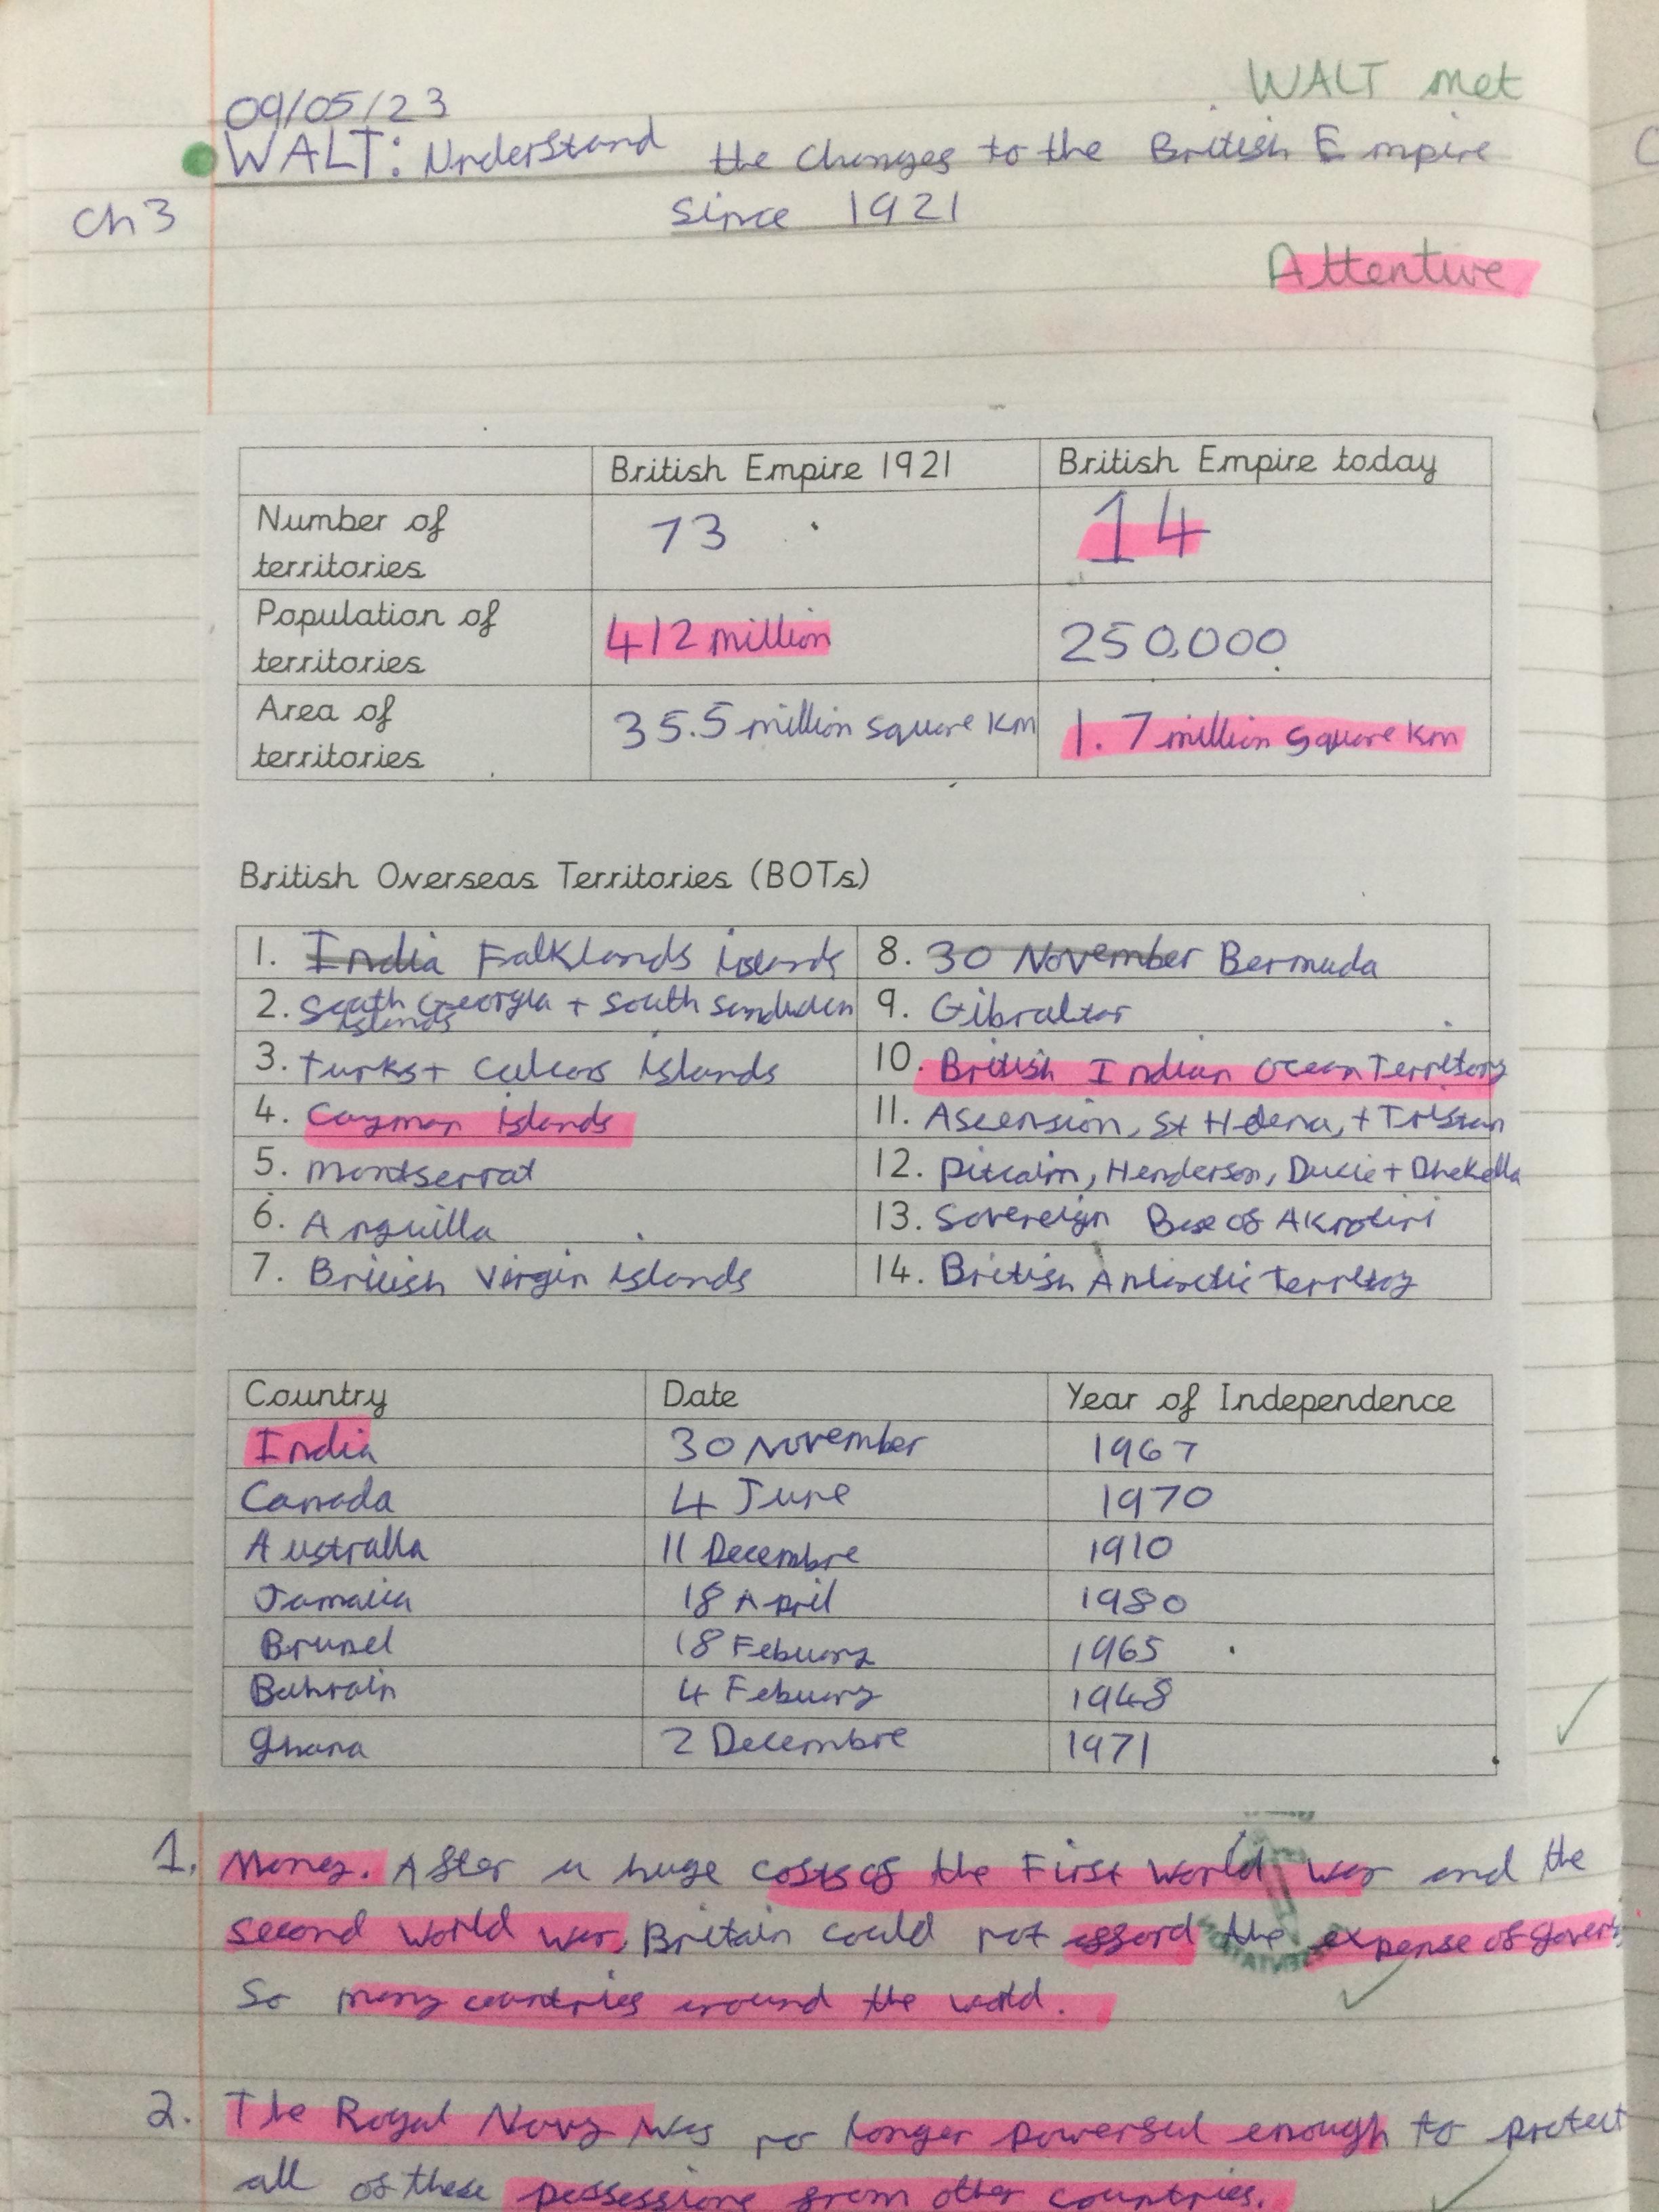 WALT met
09/05/23
WALT: Understand the changes to the British Empire
Ch 3
since 1921
Attentive
British Empire 1921 British Empire today
Number of territories 73 14
Population of territories 412 million 250,000
Area of territories 35.5 million square km 1.7 million square km
British Overseas Territories (BOTs)
1. India Falklands islands 8. 30 November Bermuda
2. South Georgia + South 9. Gibraltar
islands
3. Turks + islands 10. British Indian Ocean Territory
4. Cayman islands 11. Ascension, St Helena, + Tristan
5. Montserrat 12. Pitcairn, Henderson, Ducie + Dhekella
6. Anguilla 13. Sovereign Base of Akrotiri
7. British Virgin islands 14. British Antarctic
Country Date Year of Independence
India 30 November 1967
Canada 4 June 1970
Australia 11 Decembre 1910
Jamaica 18 April 1980
Brunel 18 Febuary 1965
Bahrain 4 Febuary 1948
Ghana 2 Decembre 1971
1. Money. After a huge costs of the First World War and the
second world war, Britain could not afford the expense of
so many countries around the world.
2. The Royal Navy was no longer powerful enough to protect
all of these possessions from other countries.